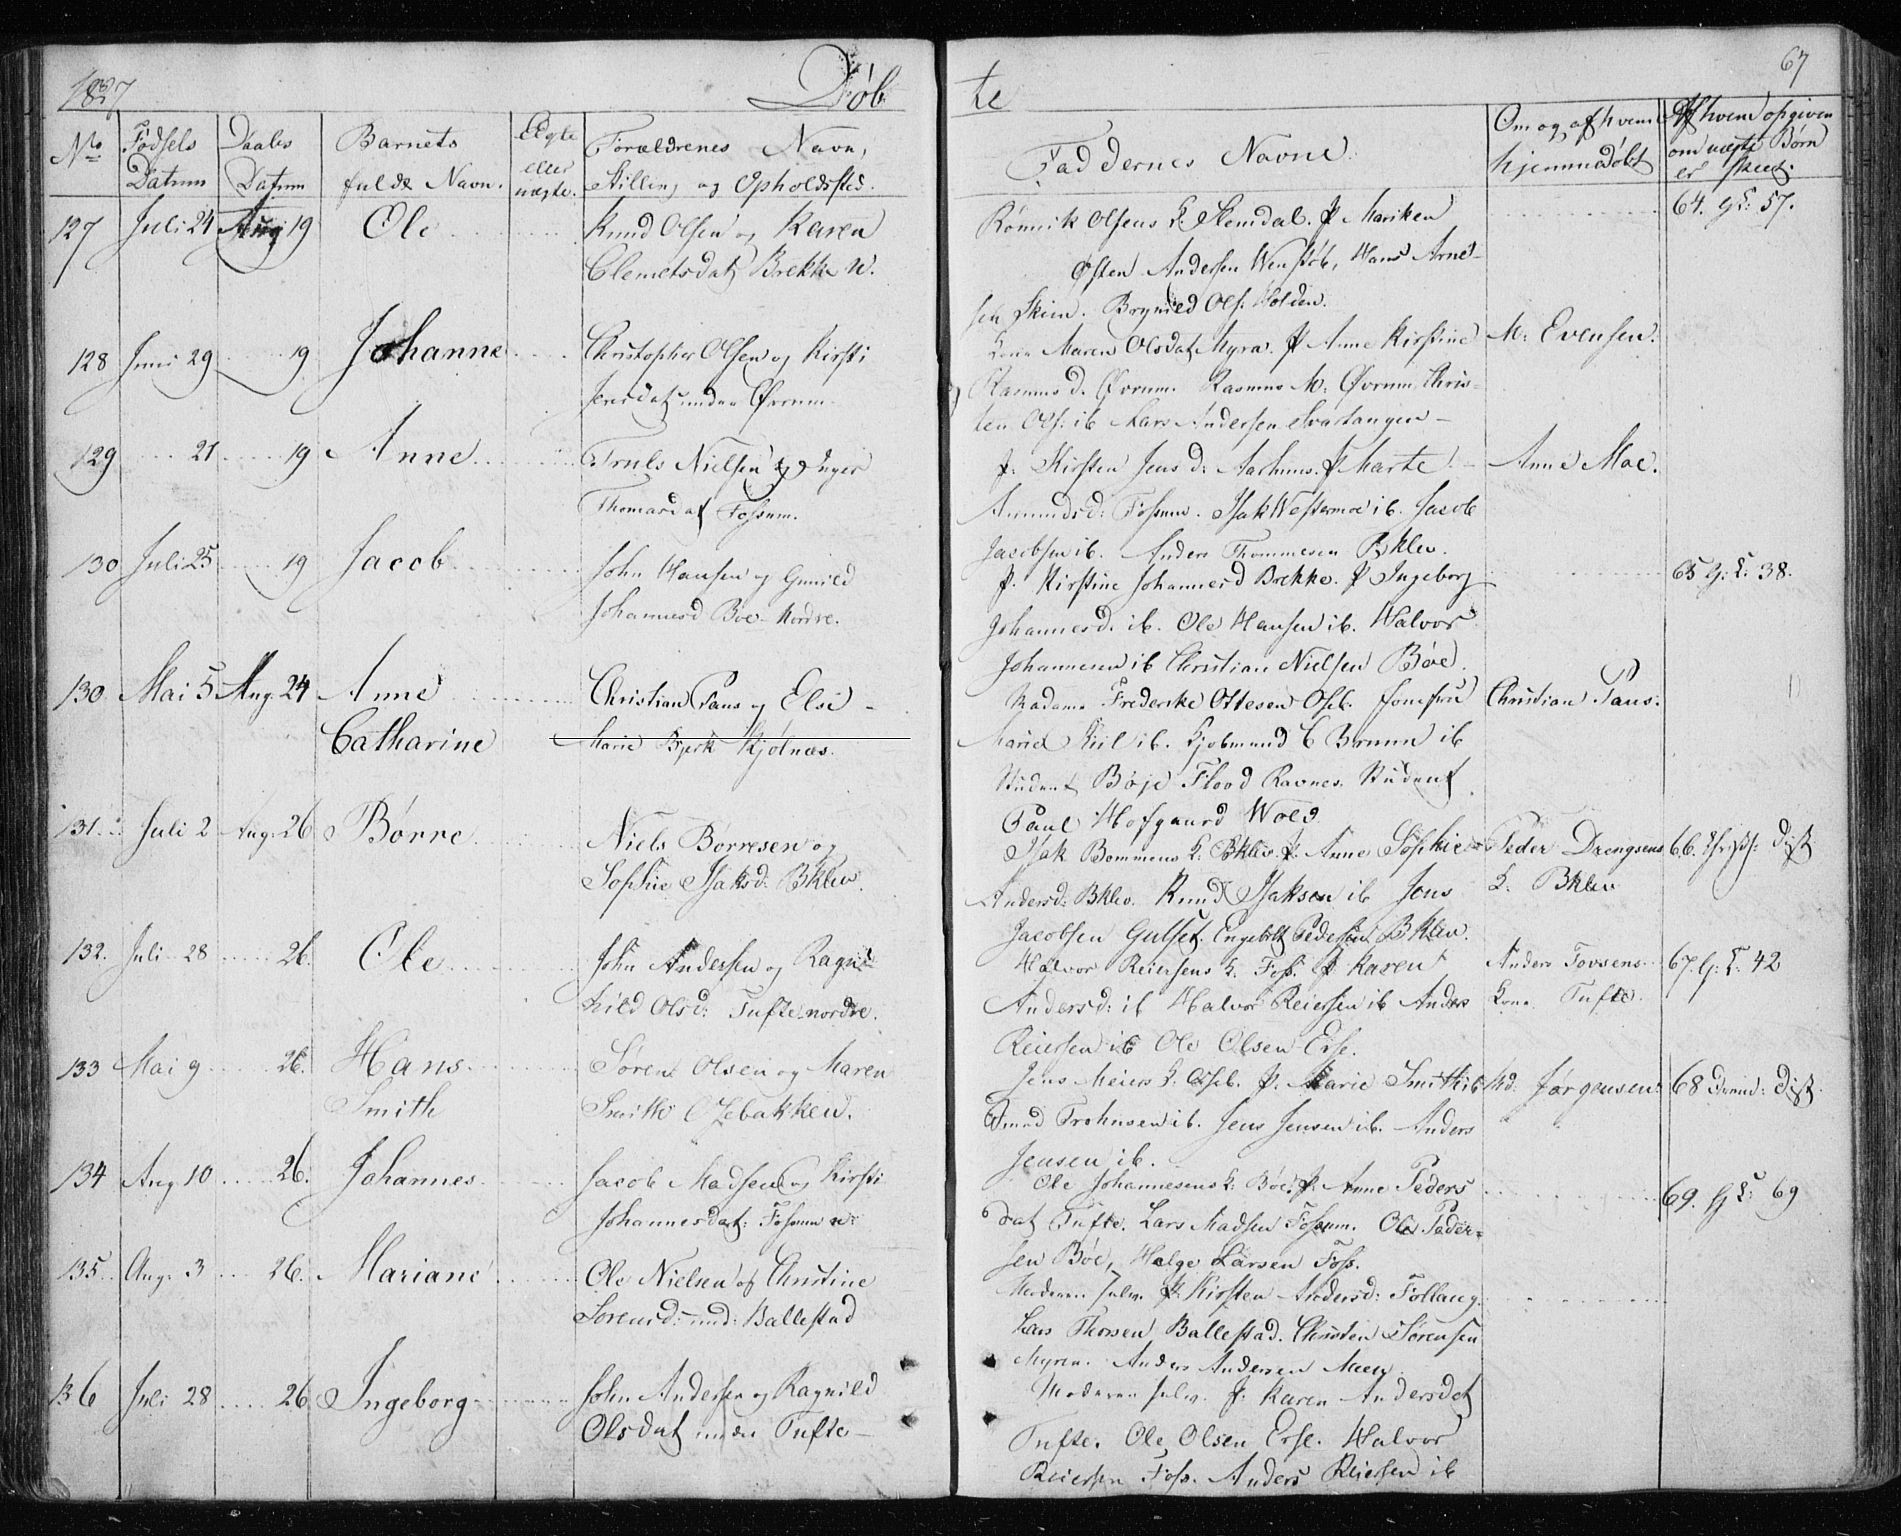 1827
Døb
te
67
No
Fødsels Datum
Daabs Datum
Barnets fulde Navn.
Ægte eller uægte.
Forældrenes Navn, Stilling og Opholdssted.
Faddernes Navne.
Om og af hvem hjemmedøbt
Af hvem opgiven om uægte Børn er skeet.
127 Juli 24 Aug 19 Ole
Knud Olsen og Karen
Clemetsdat Brekke n.
Rønnik Olsens K. Stemdal. P. Mariken
Østen Andersen Wenstøb, Hans Arne-
sen Skien. Brynild Ols: Holden.
64. G L: 57.
128 Juni 29 19 Johanne
Christopher Olsen og Kirsti
Jensdat under Øvrum.
Kone Maren Olsdat Myra. P Anne Kirstine
Rasmusd. Øvrum. Rasmus M: Øvrum, Chris-
ten Ols: ib Lars Andersen
M: Evensen.
129 21 19 Anne
Truls Nielsen og Inger
Thomasdat Fossum.
P. Kirsten Jensd: Aarhuus. P Marte
Amundsd: Fossum. Isak Westermoe ib. Jacob
Jacobsen ib. Anders Thommesen Bklev.
Anne Moe.
130 Juli 25 19 Jacob
John Hansen og Gunild
Johannesd Boe Nordre.
P. Kirstine Johannesd Brekke. P Ingeborg
Johannesd. ib. Ole Hansen ib. Halvor
Johannesen ib Christian Nielsen Bøe.
65 G: L: 38.
130 Mai 5 Aug. 24 Anne
Catharine
Christian Paus og Elsi
Marie Bjerk Kjølnæs.
Madame Frederike Ottesen Oseb. Jomfrue
Marie Kiil ib. Kjøbmand C Bruun ib
Student Bøje Flood Ravnes. Student
Paul Hofgaard Wold
Christian Paus.
131. Juli 2 Aug. 26 Børre
Niels Borresen og
Sophie Isaksd: Bklev.
Isak Bommens K: Bklev. P. Anne Sophie
Andersd: Bklev. Knud Isaksen ib Jens
Jacobsen Gulset. Engebret Pedersen Bklev.
Peder Drengsens
K. Bklev
66.
132. Juli 28 26. Ole
John Andersen og Ragn-
hild Olsd: Tufte nordre.
Halvor Reiersens K. Foss. P Karen
Andersd: ib Halvor Reiersen ib Anders
Reiersen ib Ole Olsen Erse.
Anders Tovsens
Kone Tufte.
67. G: L: 42
133 Mai 9 26. Hans
Smith
Søren Olsen og Maren
Smith Ozebakken.
Jens Meiers K. Oseb. P. Marie Smith ib
Amund Trohnsen ib. Jens Jensen ib. Anders
Jensen ib.
Md. Jørgensen.
68
134 Aug 10 26. Johannes
Jacob Madsen og Kirsti
Johannesdat: Fossum n:
Ole Johannesens K: Bøe. P. Anne Peders
dat Tufte. Lars Madsen Fossum. Ole Peder-
sen Bøe, Halge Larsen Foss.
69. G L: 69
135 Aug. 3 26. Mariane
Ole Nielsen og Christine
Sorensd: und: Ballestad
Moderen selv. P. Kirsten Andersd: Follaug.
Lars Thorsen Ballestad. Christen Sørensen
Myren. Anders Andersen
136 Juli 28 26 Ingeborg
John Andersen og Ragnild
Olsdat under Tufte
Moderen selv. P. Karen Andersdat
Tufte. Ole Olsen Erse. Halvor
Reiersen Foss. Anders Reiersen ib